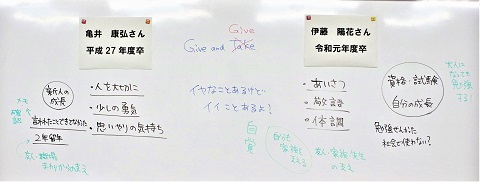 Give
Give and Take
亀井 康弘さん
平成27年度卒
伊藤 陽花さん
令和元年度卒
新人の
成長
メモ
確認
言われたことできなかった
2年留年
友人・職場
まわりからの支え
・人を大切に
・少しの勇気
・思いやりの気持ち
イヤなことあるけど
イイことあるよ!
自覚
自分も
家族を
支える
友人・家族・先生
の支え
・あいさつ
・敬語
・体調
資格・試験
自分の成長
勉強せんかった
社会で使わない?
大人に
なっても
勉強
する!